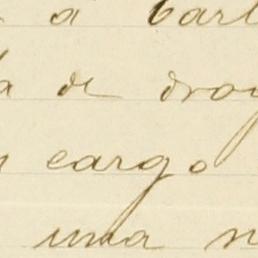 a Carl
de drog
cargo
uma n